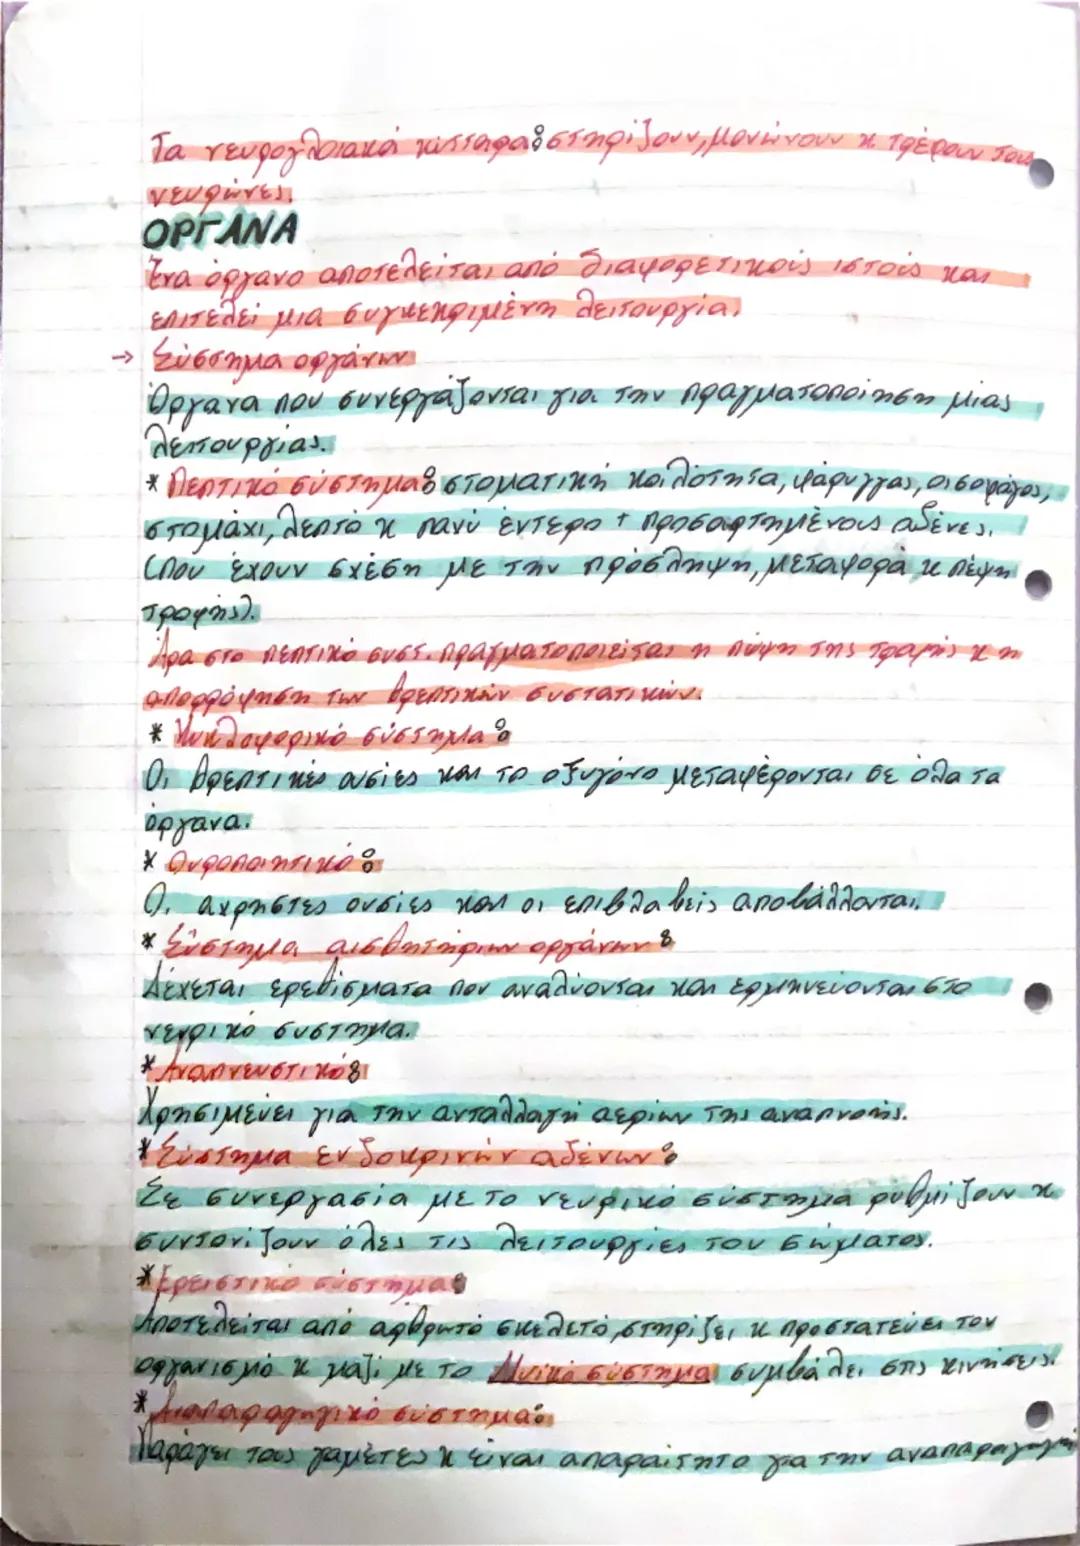 Τα νευρογλοιακά κύτταρα: στηρίζουν, μονώνουν κ τρέφουν τους
νευρώνες.
ΟΡΓΑΝΑ
Ένα όργανο αποτελείται από διαφορετικούς ιστούς και
επιτελεί μια συγκεκριμένη λειτουργία.
→ Σύστημα οργάνων
Όργανα που συνεργάζονται για την πραγματοποίηση μιας
λειτουργίας.
* Πεπτικό σύστημα: στοματική κοιλότητα, φάρυγγας, οισοφάγος,
στομάχι, λεπτό κ παχύ έντερο + προσαρτημένους αδένες.
(που έχουν σχέση με την πρόσληψη, μεταφορά κ πέψη
τροφής).
Άρα στο πεπτικό συστ. πραγματοποιείται η πέψη της τροφής κ η
απορρόφηση των θρεπτικών συστατικών.
* Κυκλοφορικό σύστημα:
Οι θρεπτικές ουσίες και το οξυγόνο μεταφέρονται σε όλα τα
όργανα.
* Ουροποιητικό:
Οι αχρηστες ουσίες και οι επιβλαβείς αποβάλλονται.
* Σύστημα αισθητήριων οργάνων:
Δέχεται ερεθίσματα που αναλύονται και ερμηνεύονται στο
νευρικό συστημα.
* Αναπνευστικό:
Χρησιμεύει για την ανταλλαγή αερίων της αναπνοής.
* Σύστημα ενδοκρινών αδένων:
Σε συνεργασία με το νευρικό σύστημα ρυθμίζουν κ
συντονίζουν όλες τις λειτουργίες του σώματος.
* Ερειστικό σύστημα:
Αποτελείται από αρθρωτό σκελετό, στηρίζει κ προστατεύει τον
οργανισμό κ μαζί με το Μυϊκό σύστημα συμβάλει στις κινήσεις.
* Αναπαραγωγικό σύστημα:
Παράγει τους γαμέτες κ είναι απαραίτητο για την αναπαραγωγή